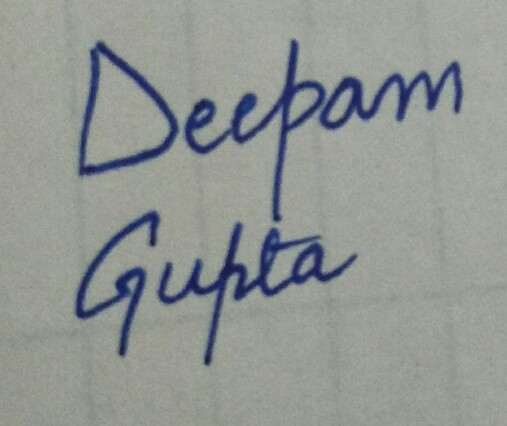 Deepam
Gupta